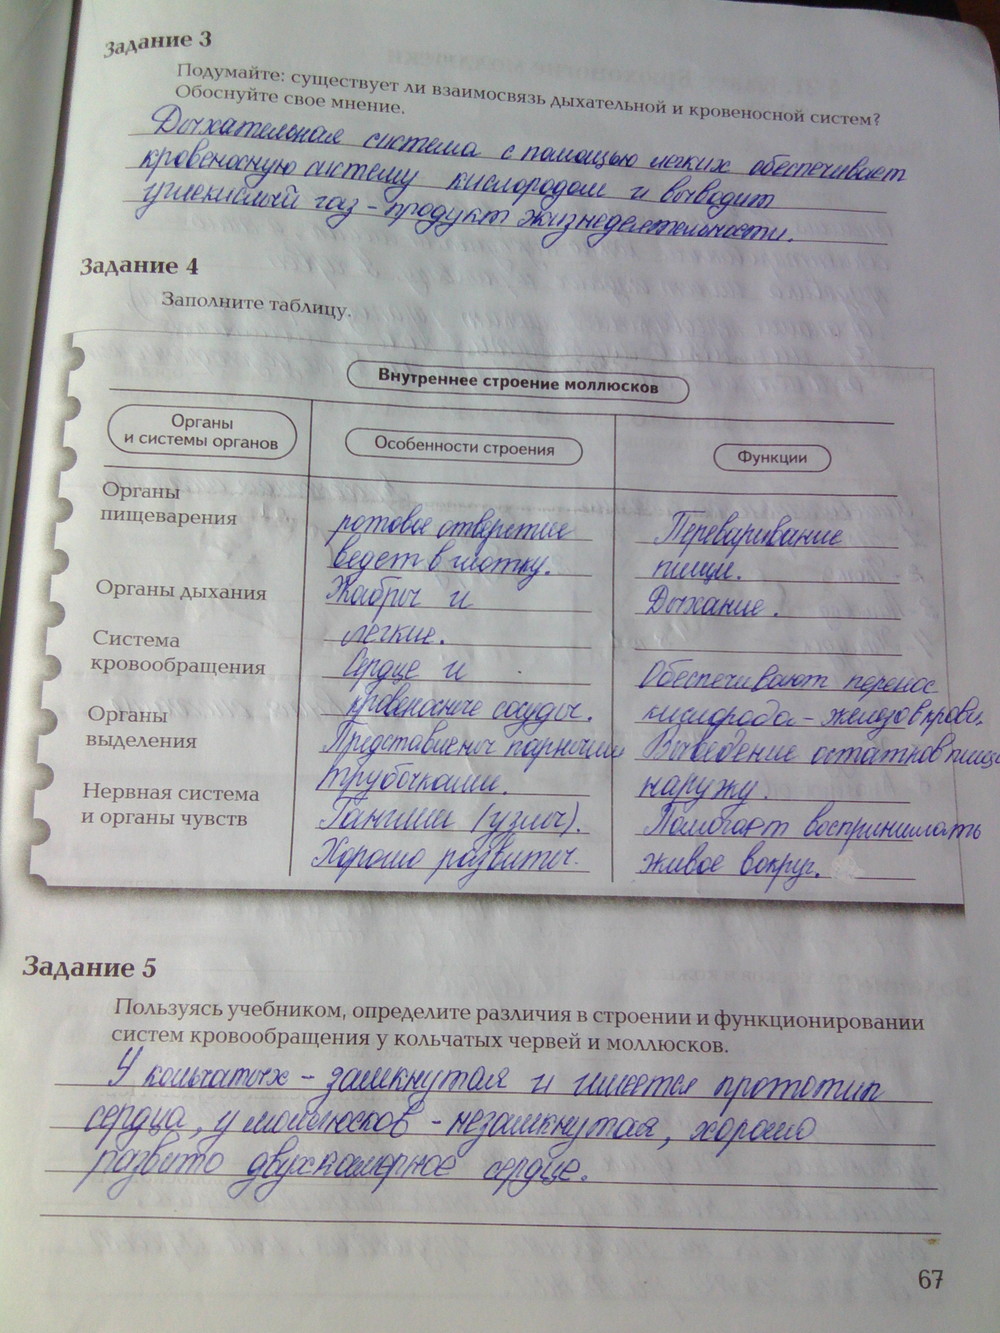 Задание 3
Подумайте: существует ли взаимосвязь дыхательной и кровеносной систем?
Обоснуйте свое мнение.
Дыхательная система с помощью легких обеспечивает
кровеносную систему кислородом и выводит
углекислый газ - продукт жизнедеятельности.
Задание 4
Заполните таблицу.
Внутреннее строение моллюсков
Органы
и системы органов
Особенности строения
Функции
Органы
пищеварения
ротовое отверстие
ведет в глотку.
Переваривание
пищи.
Органы дыхания
Жабры и
легкие.
Дыхание.
Система
кровообращения
Сердце и
кровеносные сосуды.
Обеспечивают перенос
кислорода - железо в крови.
Органы
выделения
Представлены парными
трубочками.
Выведение остатков пищи
наружу.
Нервная система
и органы чувств
Ганглии (узлы).
Хорошо развиты.
Помогают воспринимать
живое вокруг.
Задание 5
Пользуясь учебником, определите различия в строении и функционировании
систем кровообращения у кольчатых червей и моллюсков.
У кольчатых - замкнутая и имеется прототип
сердца, у моллюсков - незамкнутая, хорошо
развито двухкамерное сердце.
67